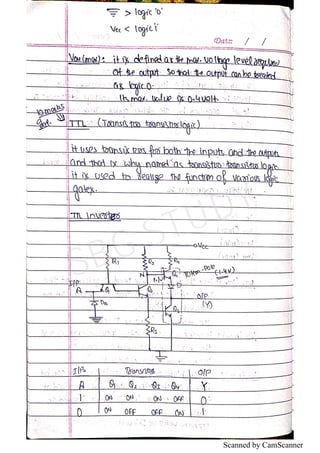 > logic '0'
Vcc < logic 1
Date: / /
VOL(max): it is defined as the max. voltage level required
at the output so that the output can be treated
as logic 0.
Its max. value is 0.4 volt.
10 marks
TTL (Transistor transistor logic)
It uses transistors for both the inputs and the outputs
and that is why named as transistor transistor logic
it is used to realize the function of various logic
gates.
TTL Inverter
+Vcc
R1 R2 R4
Totem-pole
(1.4V)
I/P
A
O/P
(Y)
R3
I/P Transistors O/P
A Q1 Q2 Q3 Q4 Y
1 ON ON ON OFF 0
0 ON OFF OFF ON 1
SBG STUDY
Scanned by CamScanner